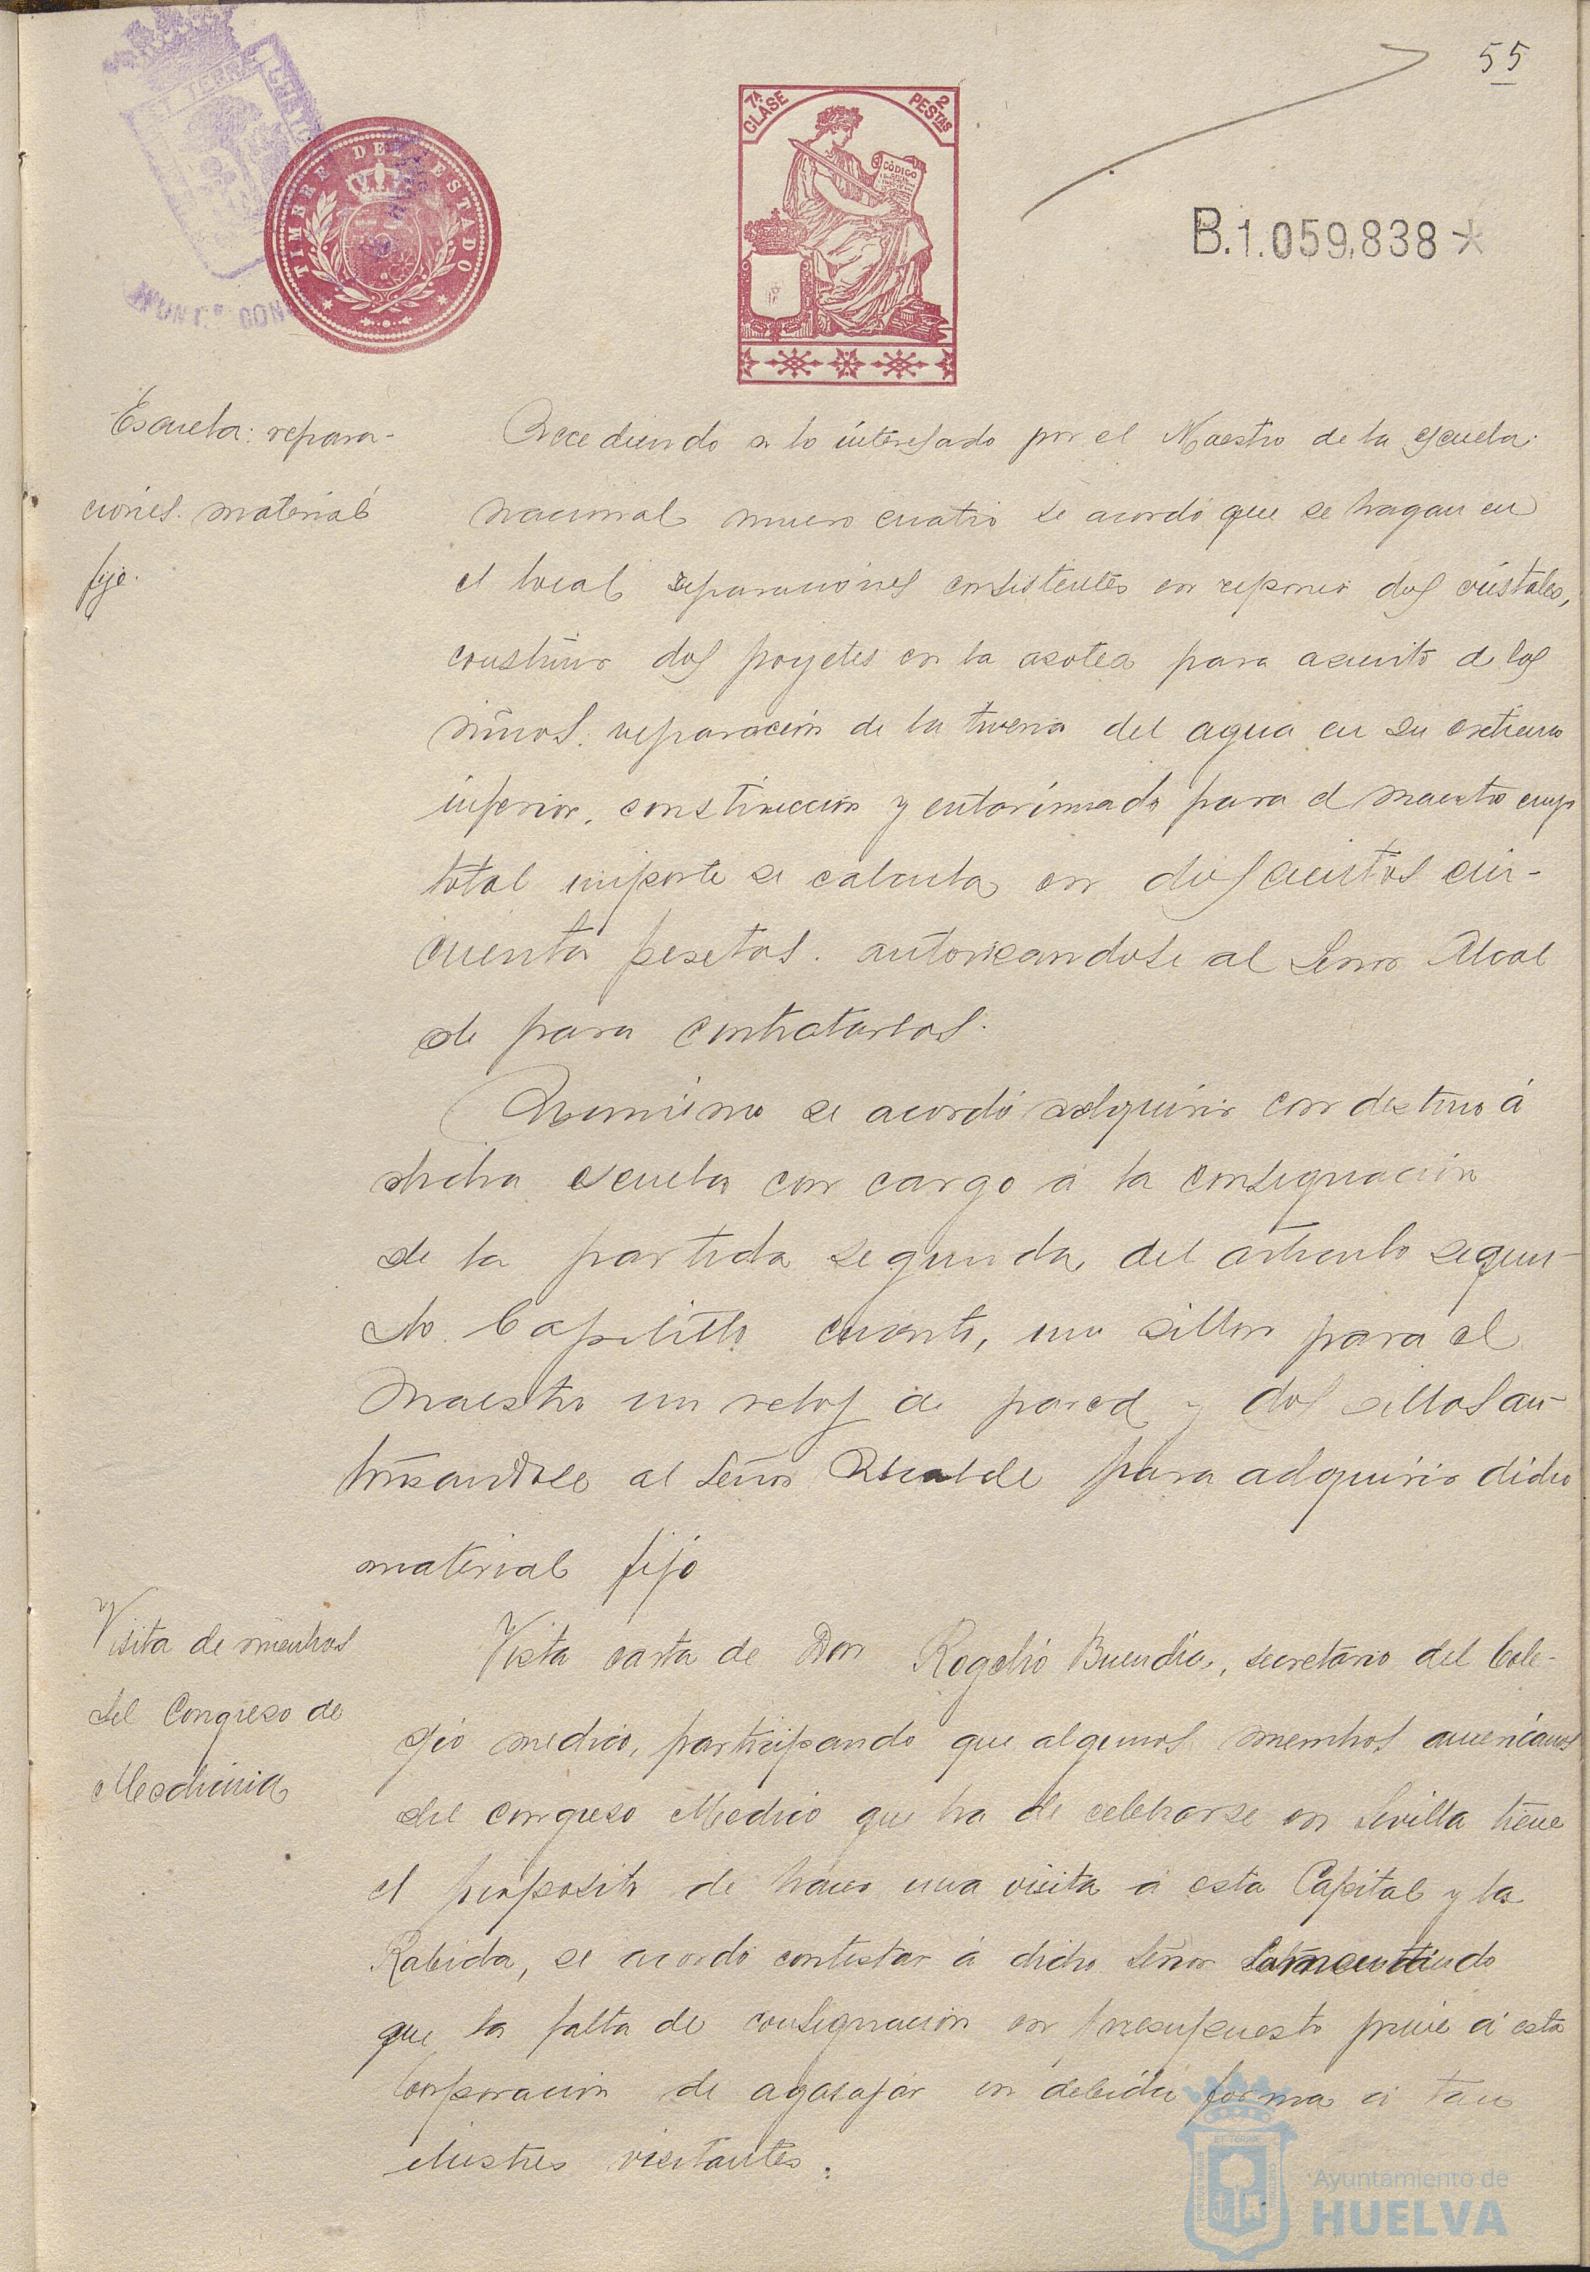 55
7ª CLASE
2 PESTAS
CÓDIGO
TIMBRE DEL ESTADO
B.1.059,838*
Escuela: repara-
ciones. material
fijo.
Accediendo a lo interesado por el Maestro de la escuela
nacional numero cuatro se acordó que se hagan en
el local reparaciones consistentes en reponer dos cristales,
construir dos poyetes en la azotea para asiento de los
niños. reparación de la tuveria del agua en su extremo
inferior, construcción y entarimado para el maestro cuyo
total importe se calcula en doscientos cin-
cuenta pesetas. autorizandose al Señor Alcal
de para contratarlas.
Asimismo se acordó adquirir con destino á
dicha escuela con cargo á la consignación
de la partida segunda del articulo segun-
do Capitulo cuarto, un sillon para el
maestro un reloj de pared y dos sillas au-
torizandose al Señor Alcalde para adquirir dicho
material fijo
Visita de miembros
del Congreso de
Medicina
Vista carta de Don Rogelio Buendia, secretario del Cole-
gio medico, participando que algunos miembros americanos
del congreso Medico que ha de celebrarse en Sevilla tiene
el proposito de hacer una visita á esta Capital y la
Rabida, se acordó contestar á dicho Señor
que la falta de consignacion en presupuesto prive á esta
Corporacion de agasajar en debida forma á tan
ilustres visitantes.
Ayuntamiento de
HUELVA